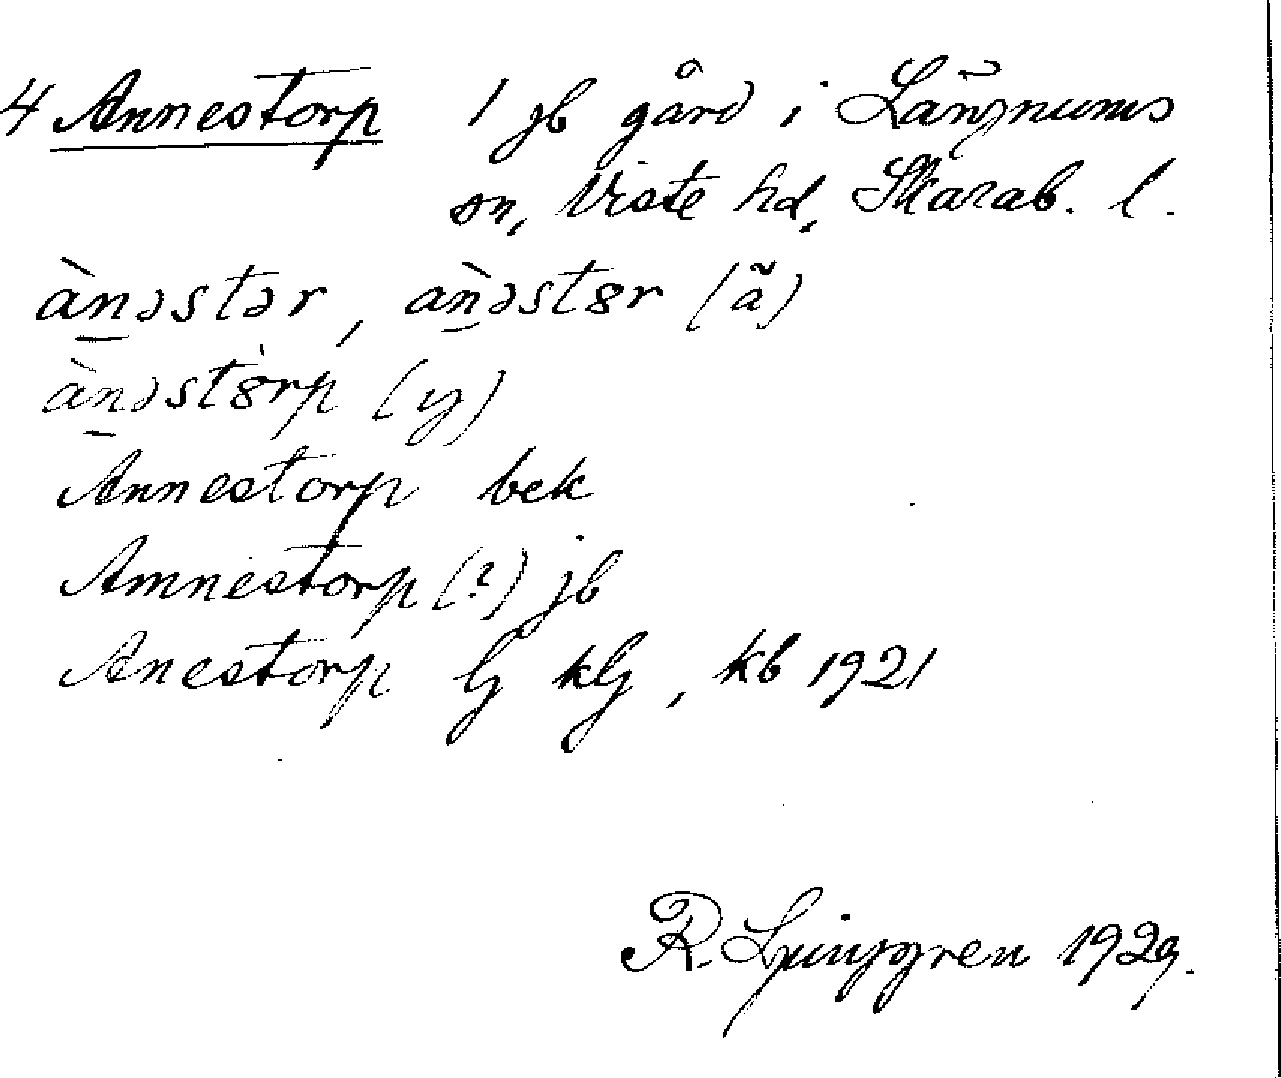 4 Annestorp 1 jb gård i Längnums
sn, Viste hd, Skarab. l.
ànəstər, aǹəst8r (ã)
ànəst8̀rp (y)
Annestorp bek
Amnestorp (?) jb
Anestorp lj klj, kb 1921
R. Ljunggren 1929.